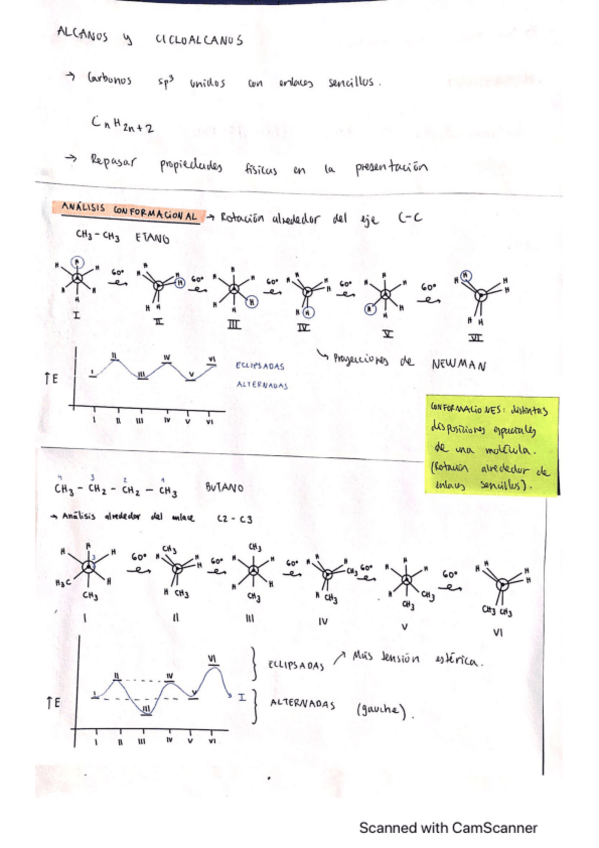 ALCANOS y CICLOALCANOS
→ Carbonos sp³ unidos con enlaces sencillos.
CnH2n+2
→ Repasar propiedades físicas en la presentación
ANÁLISIS CONFORMACIONAL → Rotación alrededor del eje C-C
CH3-CH3 ETANO
60° 60° 60° 60° 60°
I II III IV V VI
↳ Proyecciones de NEWMAN
I II III IV V VI
ECLIPSADAS
ALTERNADAS
↑E
I II III IV V VI
CONFORMACIONES: distintas
disposiciones espaciales
de una molécula.
(Rotación alrededor de
enlaces sencillos).
4 3 2 1
CH3 - CH2 - CH2 - CH3 BUTANO
→ Análisis alrededor del enlace C2-C3
60° 60° 60° 60° 60°
H H H 3 H H3C CH3
CH3 H H H CH3
CH3 H H H H CH3
H H CH3 H CH3
H H H H CH3 CH3
H H H H CH3 CH3
I II III IV V VI
I II III IV V VI I
ECLIPSADAS ↗ Más tensión estérica.
ALTERNADAS (gauche).
↑E
I II III IV V VI
Scanned with CamScanner